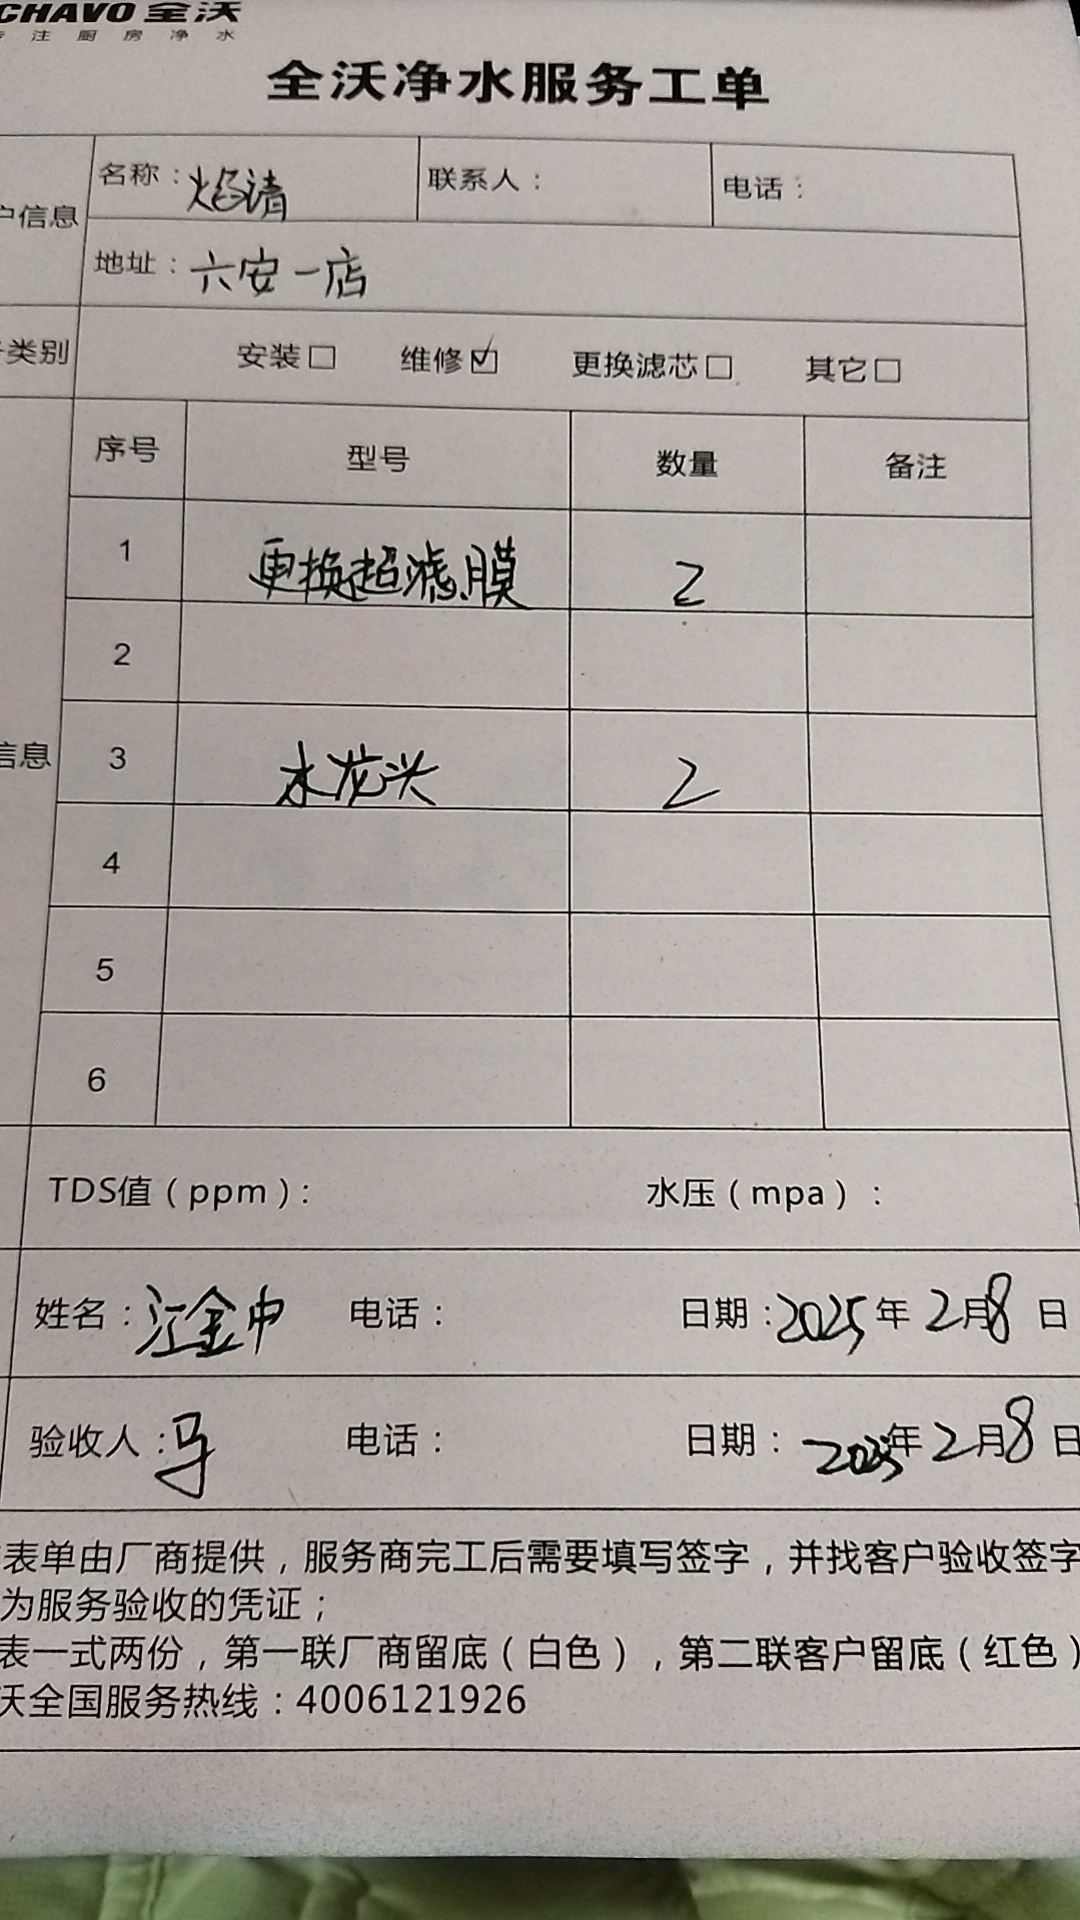 CHAVO 全沃
注厨房净水
全沃净水服务工单
户信息
名称：焰请
联系人：
电话：
地址：六安一店
类别
安装□ 维修☑ 更换滤芯□ 其它□
序号 型号 数量 备注
1 更换超滤膜 2
2
信息
3 水龙头 2
4
5
6
TDS值（ppm）： 水压（mpa）：
姓名：江金中 电话： 日期：2025年2月8日
验收人：马 电话： 日期：2025年2月8日
表单由厂商提供，服务商完工后需要填写签字，并找客户验收签字
为服务验收的凭证；
表一式两份，第一联厂商留底（白色），第二联客户留底（红色）
沃全国服务热线：4006121926